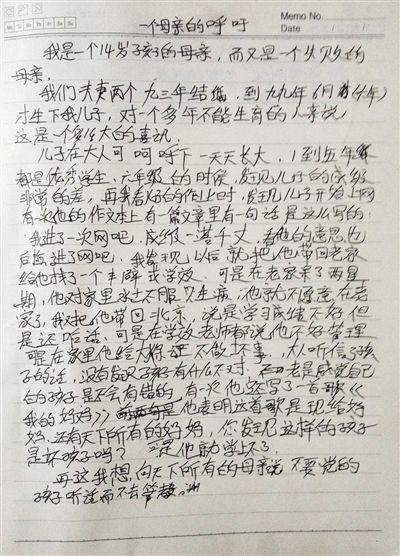 Memo No.
Date / /
一个母亲的呼吁
我是一个14岁孩子的母亲，而又是一个失败的
母亲，
我们夫妻两个九三年结婚，到九九年6月
才生下我儿子，对一个多年不能生育的人来说
这是一个多么大的喜讯，
儿子在大人呵呵护下一天天长大，1到五年级
都是优秀学生，六年级的时候，发现儿子的成绩
非常的差，再我看好的作业时，发现儿子开始上网
有一次他的作文本上有一篇文章里有一句话是这么写的：
我进了一次网吧，成绩一落千丈，看他的意思也
后悔进了网吧，我发现以后就把他带回老家
给他找了一个学校，可是在老家呆了两星
期，他对家里水土不服，生病，他就不愿意在老
家了，我又把他带回北京，说是学习成绩不好但
是还 可是在学校老师都说他不好管理
可是在家里他给大保证不做坏事，大人听信了孩
子的话，没有发现孩子有什么不对，老是感觉自己
的孩子是不会有错的，有一次他还写了一首歌《
我的妈妈》 他表明这首歌是现给妈
妈，还有天下所有的妈妈，你发现这样的孩子
是坏孩子吗？ 是他就学坏了，
再这我想向天下所有的母亲说不要觉的
孩子听话而不去管教。